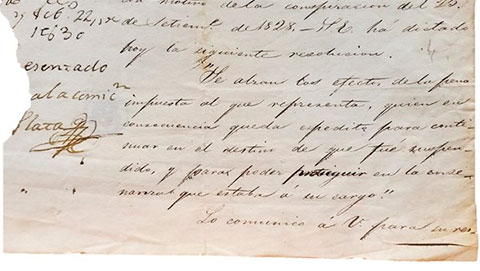 feb.º 22, 1830
esentado
a la comic.n
Plata
con motivo de la conspiracion del 25
de Setiemb.e de 1828.– S. E. ha dictado
hoy la siguiente resolucion.
"Se alzan los efectos de la pena
impuesta al que representa, quien en
consecuencia queda espedito para conti-
nuar en el destino de que fue suspen-
dido, y para poder proseguir en la ense-
ñanza que estaba á su cargo."
Lo comunico á V. para su res-